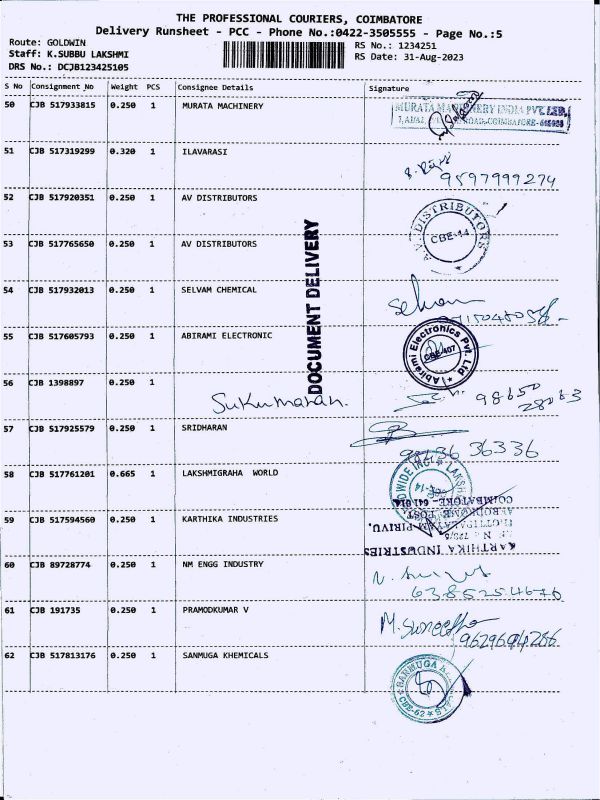 THE PROFESSIONAL COURIERS, COIMBATORE
Delivery Runsheet - PCC - Phone No.:0422-3505555 - Page No.:5
Route: GOLDWIN
Staff: K.SUBBU LAKSHMI
DRS No.: DCJB123425105
RS No.: 1234251
RS Date: 31-Aug-2023
S No Consignment No Weight PCS Consignee Details Signature
50 CJB 517933815 0.250 1 MURATA MACHINERY
MURATA MACHINERY INDIA PVT. LTD.
51 CJB 517319299 0.320 1 ILAVARASI
9597999274
52 CJB 517920351 0.250 1 AV DISTRIBUTORS
A.V. DISTRIBUTORS
CBE-14
53 CJB 517765650 0.250 1 AV DISTRIBUTORS
DOCUMENT DELIVERY
54 CJB 517932013 0.250 1 SELVAM CHEMICAL
Selvam
55 CJB 517605793 0.250 1 ABIRAMI ELECTRONIC
Abirami Electronics Pvt. Ltd
CBE-407
56 CJB 1398897 0.250 1
Sukumaran.
98650
28063
57 CJB 517925579 0.250 1 SRIDHARAN
36336
58 CJB 517761201 0.665 1 LAKSHMIGRAHA WORLD
COIMBATORE - 641 014
59 CJB 517594560 0.250 1 KARTHIKA INDUSTRIES
KARTHIKA INDUSTRIES
60 CJB 89728774 0.250 1 NM ENGG INDUSTRY
6385254676
61 CJB 191735 0.250 1 PRAMODKUMAR V
M. Suneetha
9629694286
62 CJB 517813176 0.250 1 SANMUGA KHEMICALS
CBE-62